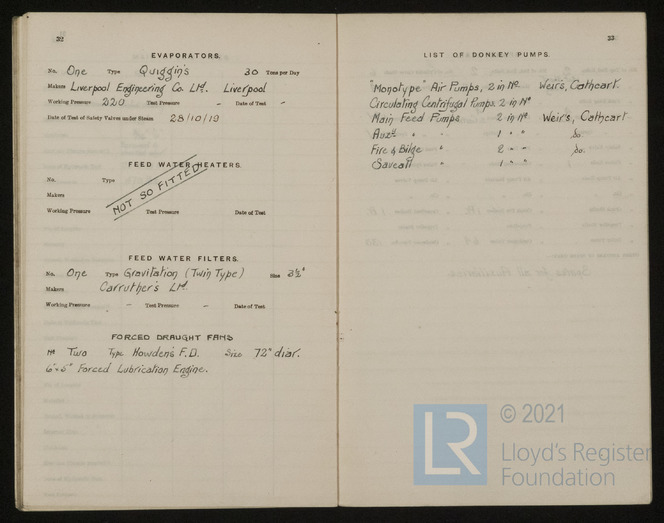 32
EVAPORATORS.
No. One Type Quiggin's 30 Tons per Day
Makers Liverpool Engineering Co. Ltd. Liverpool
Working Pressure 220 Test Pressure - Date of Test -
Date of Test of Safety Valves under Steam 28/10/19
FEED WATER HEATERS.
No. Type
NOT SO FITTED
Makers
Working Pressure Test Pressure Date of Test
FEED WATER FILTERS.
No. One Type Gravitation (Twin Type) Size 3½"
Makers Carruther's Ltd.
Working Pressure - Test Pressure - Date of Test
FORCED DRAUGHT FANS
No Two Type Howden's F.D. Size 72" diar.
Forced Lubrication Engine.
33
LIST OF DONKEY PUMPS.
"Monotype" Air Pumps, 2 in No. Weirs, Cathcart.
Circulating Centrifugal Pumps 2 in No
Main Feed Pumps 2 in No Weir's, Cathcart
Auxy " " 1 " " do.
Fire & Bilge " 2 " " do.
Saveall " 1 " "
LR
© 2021
Lloyd's Register
Foundation